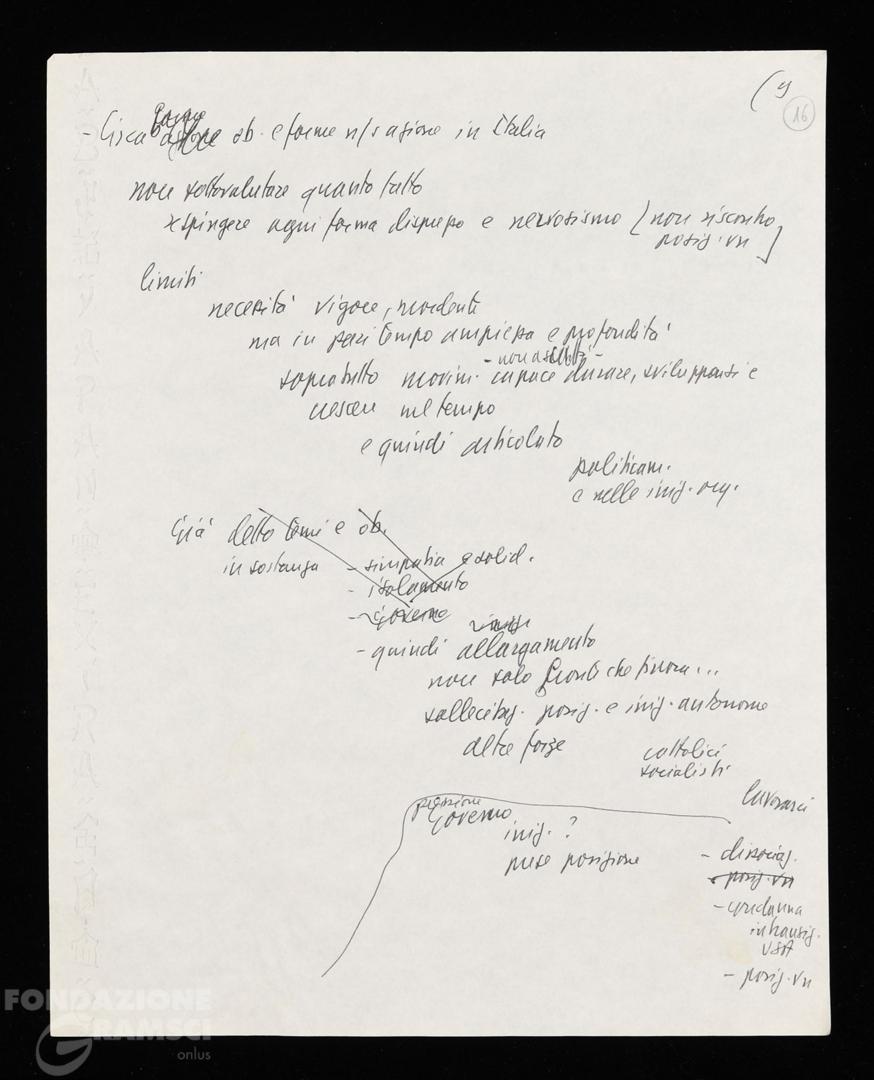 (9
16
- Circa ob. e forme n/s azione in Italia
non sottovalutare quanto fatto
respingere ogni forma disprezzo e nervosismo [non riscontro
posiz. vn]
limiti
necessità vigore, mordente
ma in pari tempo ampiezza e profondità
sopratutto movim. capace durare, svilupparsi e
crescere nel tempo
e quindi articolato
politicam.
e nelle iniz. org.
Già detto temi e ob.
in sostanza - simpatia e solid.
- isolamento
- Governo
- quindi allargamento
non solo fronti che finora...
sollecitaz. posiz. e iniz. autonome
altre forze
cattolici
socialisti
lavorarci
pressione
Governo
iniz. ?
prese posizione
- dissociaz.
- posiz. vn
- condanna
intransig.
USA
- posiz. vn
FONDAZIONE
GRAMSCI
onlus